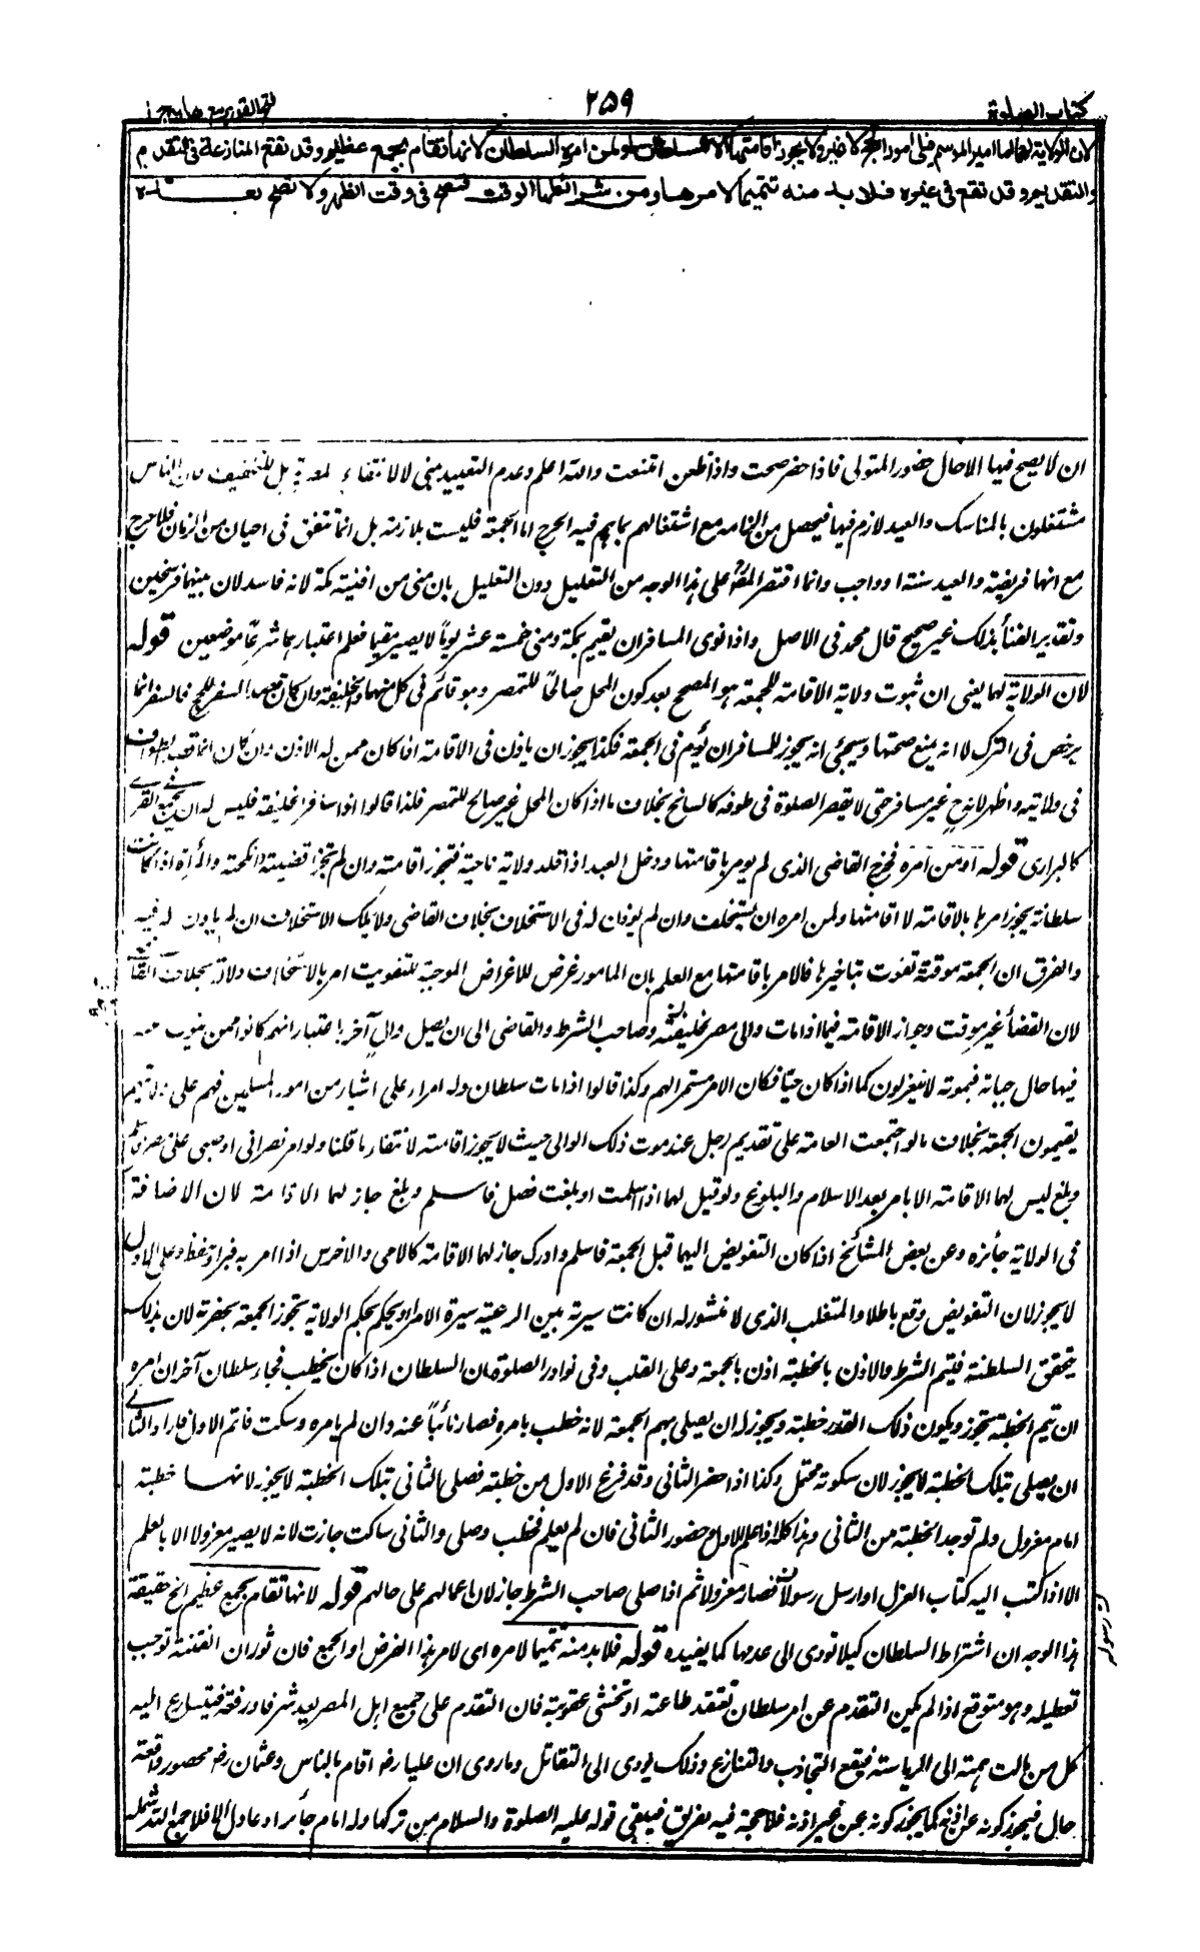 كتاب الصلوة
٢٥٩
فتح القدير مع هدايه ج ١
لان الولاية لهما اما امير الموسم فيلى امور الحج لا غير ولا يجوز اقامتها الا للسلطان او لمن امره السلطان لانها تقام بجمع عظيم وقد تقع المنازعة فى التقدم
والتقديم وقد تقع فى غيره فلا بد منه تتميما لامرها ومن شرائطها الوقت فتصح فى وقت الظهر ولا تصح بعده
ان لا يصح فيها الاحال حضور المتولى فاذا حضر صحت واذا ظعن امتنعت والله اعلم وعدم التعييد بمنى لا لانتفاء المصرية بل للتخفيف فان الناس
مشتغلون بالمناسك والعيد لازم فيها فيحصل من الزامه مع اشتغالهم بما هم فيه الحرج اما الجمعة فليست بلازمة بل انما تتفق فى احيان من الزمان فلا حرج
مع انها فريضة والعيد سنة او واجب وانما اقتصر المص على هذا الوجه من التعليل دون التعليل بان منى من افنية مكة لانه فاسد لان بينهما فرسخين
وتقدير الفناء بذلك غير صحيح قال محمد فى الاصل واذا نوى المسافر ان يقيم بمكة ومنى خمسة عشر يوما لا يصير مقيما فعلم اعتبارهما شرعا موضعين قوله
لان الولاية لهما يعنى ان ثبوت ولاية الاقامة للجمعة هو المصحح بعد كون المحل صالحا للتمصر وهو قائم فى كل منهما والخليفة وان كان قصد السفر للحج فالسفر انما
يرخص فى الترك لا انه يمنع صحتها وسيجئ انه يجوز للمسافر ان يؤم فى الجمعة فكذا يجوز ان ياذن فى الاقامة اذا كان ممن له الاذن وان كان انما قصد الطواف
فى ولايته واظهر لانه ح غير مسافر حتى لا يقصر الصلوة فى طوفه كالسائح بخلاف ما اذا كان المحل غير صالح للتمصر فلذا قالوا اذا سافر الخليفة فليس له ان يجمع فى القرى
كالبرارى قوله او من امره فخرج القاضى الذى لم يومر باقامتها ودخل العبد اذا قلد ولاية ناحية فتجوز اقامته وان لم تجز اقضيته وانكحته والمرأة اذا كانت
سلطانة يجوز امرها بالاقامة لا اقامتها ولمن امره ان يستخلف وان لم يوذن له فى الاستخلاف بخلاف القاضى ولا يملك الاستخلاف ان لم ياذن له فيه
والفرق ان الجمعة موقتة تفوت بتاخيرها فالامر باقامتها مع العلم بان المامور غرض للاعراض الموجبة للتفويت امر بالاستخلاف دلالة بخلاف القاضى
لان القضاء غير موقت وجواز الاقامة فيما اذا مات والى مصر لخليفته وصاحب الشرط والقاضى الى ان يصل وال آخر باعتبار انهم كانوا ممن ينوب عنه
فيها حال حياته فبموته لا ينعزلون كما اذا كان حيا فكان الامر مستمرا لهم وكذا قالوا اذا مات سلطان وله امراء على اشياء من امور المسلمين فهم على ولايتهم
يقيمون الجمعة بخلاف ما لو اجتمعت العامة على تقديم رجل عند موت ذلك الوالى حيث لا يجوز اقامته لانتفاء ما قلنا ولو امر نصرانى او صبى على مصر فاسلم
وبلغ ليس لهما الاقامة الا بامر بعد الاسلام والبلوغ ولو قيل لهما اذا اسلمت او بلغت فصل فاسلم وبلغ جاز لهما الاقامة لان الاضافة
فى الولاية جائزة وعن بعض المشائخ اذا كان التفويض اليهما قبل الجمعة فاسلم وادرك جاز لهما الاقامة كالامى والاخرس اذا امر به فبرأ وحفظ وعلى الاول
لا يجوز لان التفويض وقع باطلا والمتغلب الذى لا منشور له ان كانت سيرته بين الرعية سيرة الامراء ويحكم بحكم الولاية تجوز الجمعة بحضرته لان بذلك
يتحقق السلطنة فيتم الشرط والاذن بالخطبة اذن بالجمعة وعلى القلب وفى نوادر الصلوة ان السلطان اذا كان يخطب فجاء سلطان آخر ان امره
ان يتم الخطبة يجوز ويكون ذلك القدر خطبة ويجوز له ان يصلى بهم الجمعة لانه خطب بامره فصار نائبا عنه وان لم يامره وسكت فاتم الاول فاراد الثانى
ان يصلى بتلك الخطبة لا يجوز لان سكوته محتمل وكذا اذا حضر الثانى وقد فرغ الاول من خطبته فصلى الثانى بتلك الخطبة لا يجوز لانها خطبة
امام معزول ولم توجد الخطبة من الثانى وهذا كله اذا علم الاول حضور الثانى فان لم يعلم فخطب وصلى والثانى ساكت جازت لانه لا يصير معزولا الا بالعلم
الا اذا كتب اليه كتاب العزل او ارسل رسولا فصار معزولا ثم اذا صلى صاحب الشرط جاز لان عمالهم على حالهم قوله لانها تقام بجمع عظيم الخ حقيقة
هذا الوجه ان اشتراط السلطان كيلا تودى الى عدمها كما يفيده قوله فلا بد منه تتميما لامره اى لامر هذا الفرض او الجمع فان ثوران الفتنة توجب
تعطيله وهو متوقع اذا لم يكن التقدم عن امر سلطان تعتقد طاعته او تخشى عقوبته فان التقدم على جميع اهل المصر يعد شرفا ورفعة فيتسارع اليه
كل من مالت همته الى الرياسة فيقع التجاذب والتنازع وذلك يودى الى التقاتل وما روى ان عليا رضه اقام بالناس وعثمان رضه محصور واقعة
حال فيجوز كونه عن اذنه كما يجوز كونه عن غير اذنه فلا حجة فيه لفريق فيبقى قوله عليه الصلوة والسلام من تركها وله امام جائر او عادل الا فلا جمع الله شمله